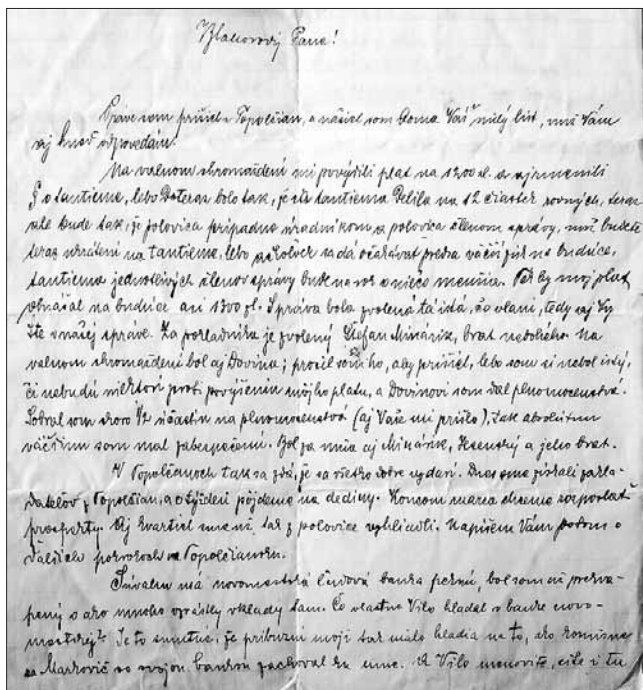 Blahorodý Pane!
Práve som prišiel z Topoľčian, a našiel som doma Váš milý list, nuž Vám
aj hneď odpovedám.
Na valnom shromaždení mi povýšili plat na 1200 zl. a aj zmenili
§ o tantieme, lebo doteraz bolo tak, že sa tantiema delila na 12 čiastek rovných, teraz
ale bude tak, že polovica pripadne úradníkom a polovica členom správy, nuž budete
teraz ukrátení na tantieme, lebo ačkoľvek sa dá očakávať predsa väčší zisk na budúce,
tantiema jednotlivých členov správy bude na rok o niečo menšia. Tak by môj plat
obnášal na budúce asi 1300 zl. Správa bola zvolená tá istá, čo vlani, tedy aj Vy
ste v našej správe. Za pokladníka je zvolený Štefan Minárik, brat nebohého. Na
valnom shromaždení bol aj Dovina; prosil som ho, aby prišiel, lebo som si nebol istý,
či nebudú niektorí proti povýšeniu môjho platu, a Dovinovi som dal plnomocenstvá.
Sobral som skoro 1/2 účastín na plnomocenstvá (aj Vaše mi prišlo), tak absolútnu
väčšinu som mal zabezpečenú. Bol za mňa aj Minárik, a jeho brat.
V Topoľčanoch tak sa zdá, že sa všetko dobre vydarí. Dnes sme získali zakla-
dateľov z Topoľčian, a o týždeň pôjdeme na dediny. Koncom marca chceme rozposlať
prospekty. Aj kvartieľ sme už tak z polovice vyhliadli. Napíšem Vám potom o
ďalších pokrokoch na Topoľčiansku.
má novomestská ľudová banka peknú, bol som až prekva-
pený s ako mnoho vzrástly vklady tam. Čo vlastne Vilo hľadal v banke novo-
mestskej? Je to smutné, že príbuzní moji tak málo hľadia na to, ako
sa Markovič so svojou bankou zachoval ku mne. A Vilo menovite, ešte i tu